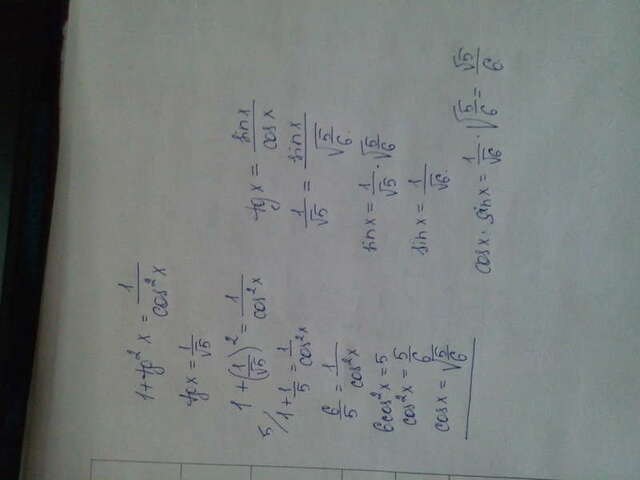 1+tg²x = 1/cos²x
tgx = 1/√5
1+(1/√5)² = 1/cos²x
5/ 1+1/5 = 1/cos²x
6/5 = 1/cos²x
6cos²x = 5
cos²x = 5/6
cosx = √5/6
tgx = sinx/cosx
1/√5 = sinx/√5/6
sinx = 1/√5 · √5/√6
sinx = 1/√6.
cosx · sinx = 1/√6 · √5/6 = √5/6.